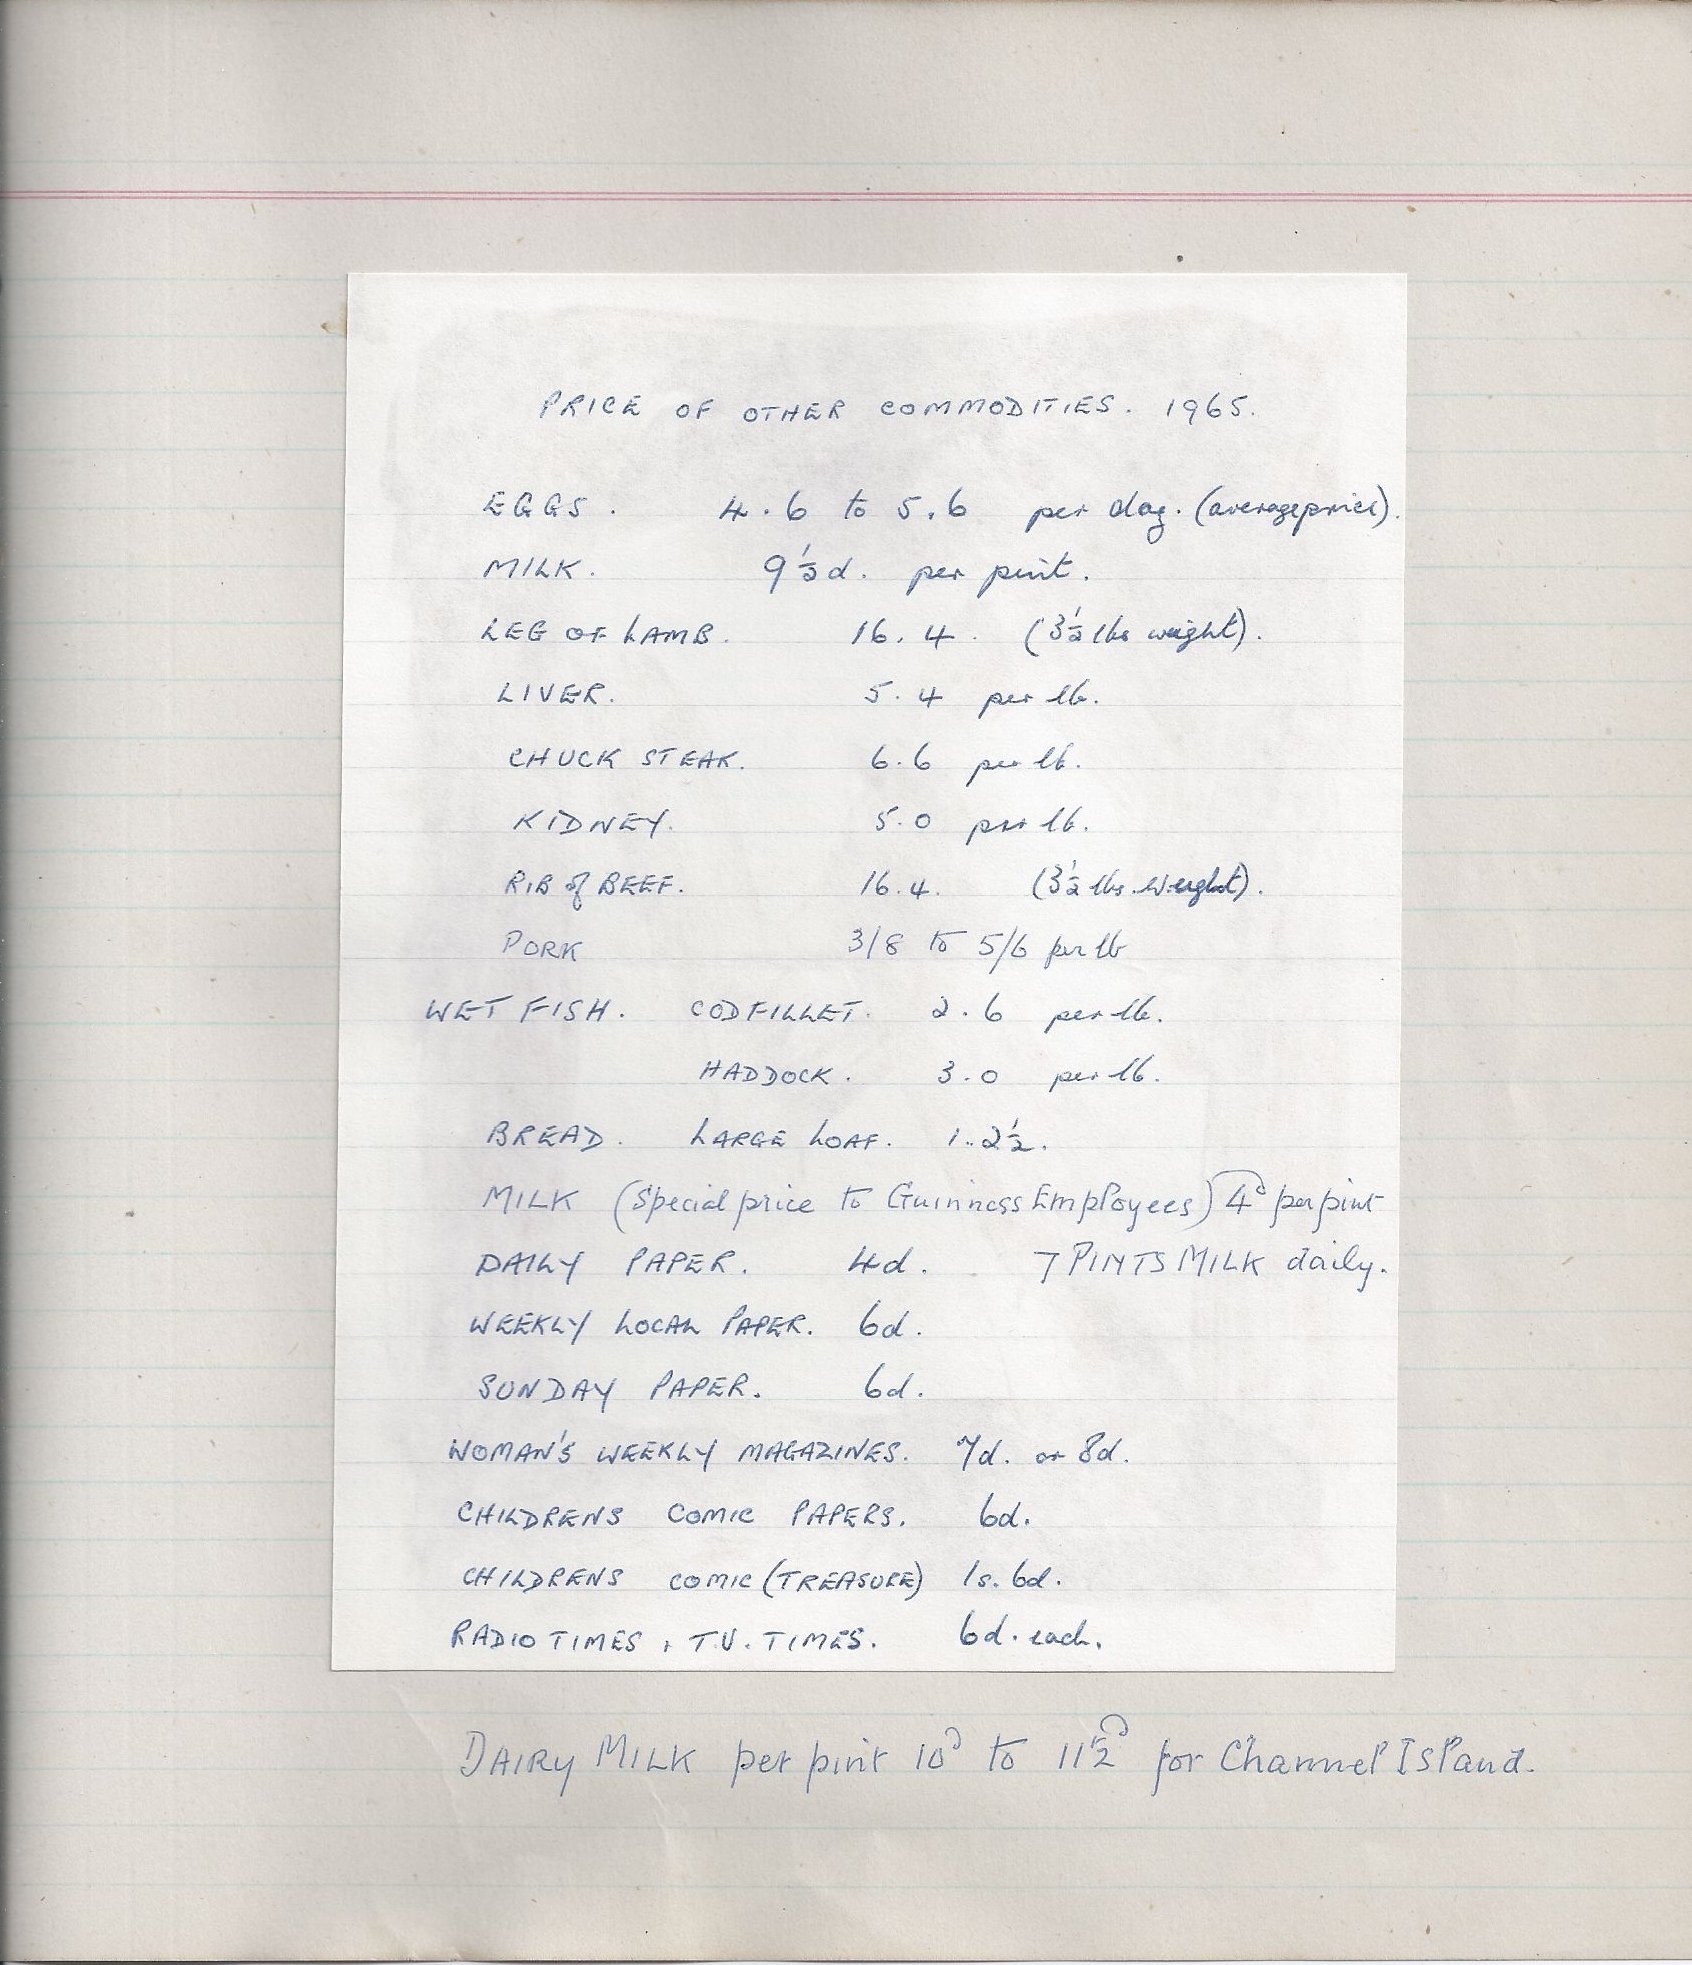 PRICE OF OTHER COMMODITIES. 1965.
EGGS. 4.6 to 5.6 per doz. (average price).
MILK. 9½d. per pint.
LEG OF LAMB. 16.4. (3½ lbs weight).
LIVER. 5.4 per lb.
CHUCK STEAK. 6.6 per lb.
KIDNEY. 5.0 per lb.
RIB of BEEF. 16.4. (3½ lbs. weight).
PORK 3/8 to 5/6 per lb
WET FISH. COD FILLET. 2.6 per lb.
HADDOCK. 3.0 per lb.
BREAD. LARGE LOAF. 1..2½.
MILK (Special price to Guinness Employees) 4d per pint
DAILY PAPER. 4d. 7 PINTS MILK daily.
WEEKLY LOCAL PAPER. 6d.
SUNDAY PAPER. 6d.
WOMAN'S WEEKLY MAGAZINES. 7d. or 8d.
CHILDRENS COMIC PAPERS. 6d.
CHILDRENS COMIC (TREASURE) 1s. 6d.
RADIO TIMES + T.V. TIMES. 6d. each.
DAIRY MILK per pint 10d to 11½d for Channel Island.